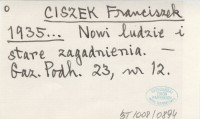 o
CISZEK Franciszek
1935... Nowi ludzie i
stare zagadnienia. —
Gaz. Podh. 23, nr 12.
BT 1008/0894